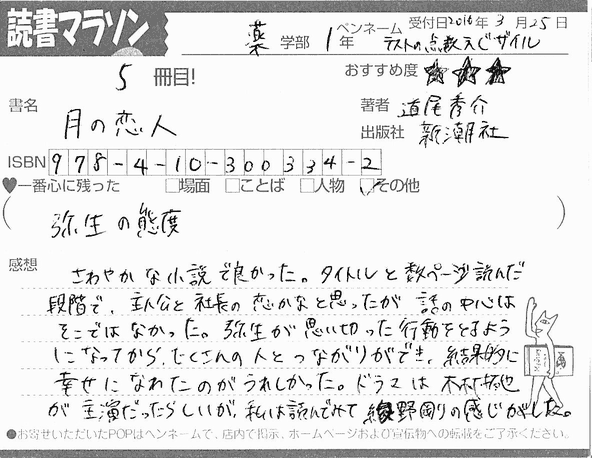 読書マラソン
受付日2016年3月25日
薬 学部 1年 ペンネーム テストの点数えじサイル
5 冊目!
おすすめ度 ★★★
書名
月の恋人
著者 道尾秀介
出版社 新潮社
ISBN 978-4-10-300334-2
♥一番心に残った □場面 □ことば □人物 ☑その他
(弥生の態度)
感想
さわやかな小説で良かった。タイトルと数ページ読んだ
段階で、主人公と社長の恋かなと思ったが 話の中心は
そこではなかった。弥生が思い切った行動をとるよう
になってから、たくさんの人とつながりができ、結果的に
幸せになれたのがうれしかった。ドラマは木村拓也
が主演だったらしいが、私は読んでみて綾野剛りの感じがした。
●お寄せいただいたPOPはペンネームで、店内で掲示、ホームページおよび宣伝物への転載をご了承ください。